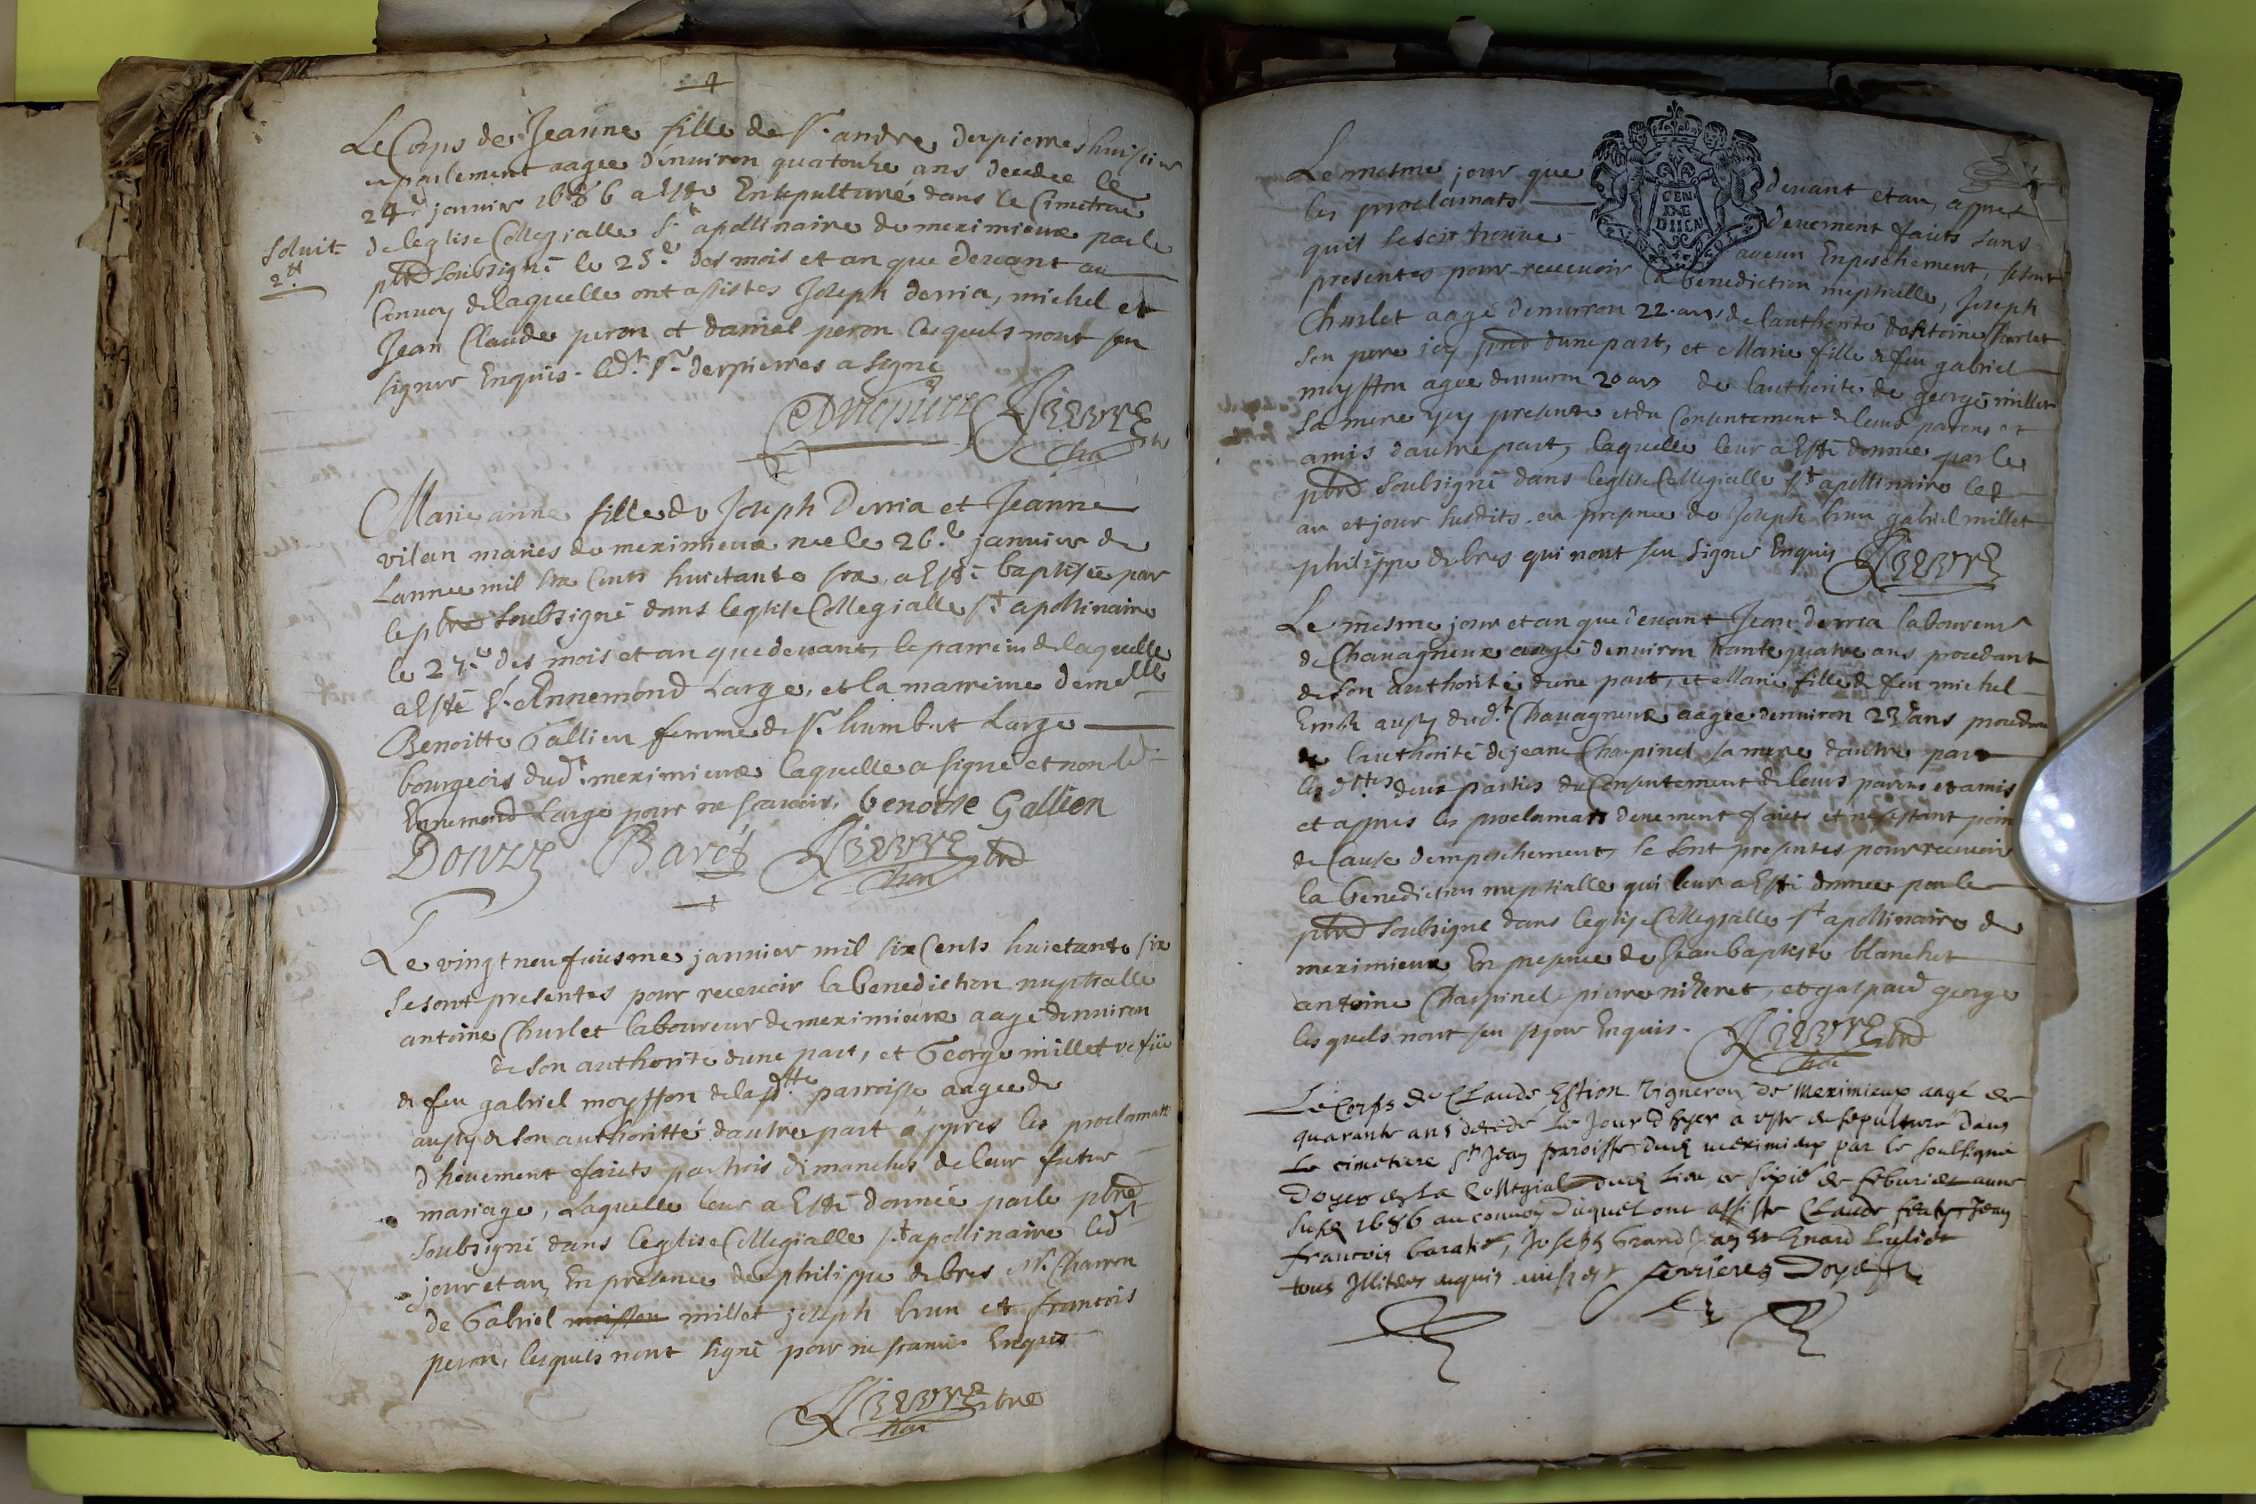 Le Corps de Jeanne fille de Sr. andre derpierres huissier
en parlement aagee denuiron quatorze ans decedee le
24e janvier 1686 a Esté Ensepulturé dans le Cimetiere
Soluit
de leglise Collegialle St apollinaire de meximieux par le
pbre soubsigné le 25.e des mois et an que devant au
Convoy de laquelle ont assistes Joseph derria, michel et
Jean Claude peron et daniel peron lesquels nont sceu
signer Enquis. led.t Sr. derpierres a signé
Marie anne fille de Joseph Derria et Jeanne
vilan maries de meximieux nee le 26.e janvier de
Lannee mil six Cents huictante six, a Esté baptisée par
le pbre soubsigné dans leglise Collegialle St apollinaire
le 27.e des mois et an que devant, le parrein de laquelle
a Esté Sr. Annemond Large, et la marreine demelle
Benoitte Gallien femme de Sr. humbert Large
bourgeois dud.t meximieux laquelle a signé et non led.
Ennemond Large pour ne scavoir. benoitte Gallien
Le vingt neufviesme janvier mil six Cents huictante six
se sont presentes pour recevoir la benediction nuptialle
antoine Churlet laboureur de meximieux aagé denviron
de son authorité dune part, et George millet
de feu gabriel moysson de lad.tte parroisse aagee de
aussy de son authoritté dautre part appres les proclamatt
dheuement faicts par trois dimanches de leur futur
mariage, Laquelle leur a Esté donnée par le pbre
soubsigné dans leglise Collegialle St apollinaire led.t
jour et an En presence de philippe debres Mr. Charron
de Gabriel millet joseph brun et francois
peron, lesquels nont signé pour ne scavoir Enquis
Le mesme jour que devant et an, appres
les proclamats devement faicts sans
quil se soit trouvé aucun Enpeschement, se sont
presentes pour recevoir la benediction nuptialle, Joseph
Churlet aagé denviron 22. ans de lauthorité dAntoine Churlet
son pere icy pnt dune part, et Marie fille de feu gabriel
moysson agee denviron 20 ans de lauthorité de george millet
sa mere icy presente et du Consentement de leurs parens et
amis dautre part, laquelle leur a Esté donnee par le
pbre soubsigné dans leglise Collegialle St apollinaire les
an et jour susdits. en presence de Joseph brun gabriel millet
philippe debres qui nont sceu signé Enquis
Le mesme jour et an que devant Jean derria laboureur
de Chavagneux aagé denviron trante quatre ans procedant
de son authorité dune part, et Marie fille de feu michel
aussy dud.t Chavagneux aagee denviron 23 ans procedant
de lauthorité de jeane Charpinel sa mere dautre part
lesd.ttes deux parties du Consentement de leurs parens et amis
et appres les proclamats devement faicts et nestant point
de Cause dempeschement, se sont presentes pour recevoir
la benediction nuptialle qui leur a Esté donnee par le
pbre soubsigné dans leglise Collegialle St apollinaire de
meximieux En presence de Jean baptiste blanchet
antoine Charpinel, pierre nizeret, et gaspard george
les quels nont sceu signer Enquis.
Le Corps de Claude Estion Vigneron de Meximieux aagé de
quarante ans decedé Le Jour d hyer a esté ensepulturé Dans
Le cimetiere St Jean paroisse dud meximieux par le soubsigné
Doyen de La Collegiale dud Lieu ce sixie de febvrier anne
susd 1686 au convoy Duquel ont assisté Claude Jean
francois baratier, Joseph Grand Jean et
tous Illiteres requis ferrieres Doyen